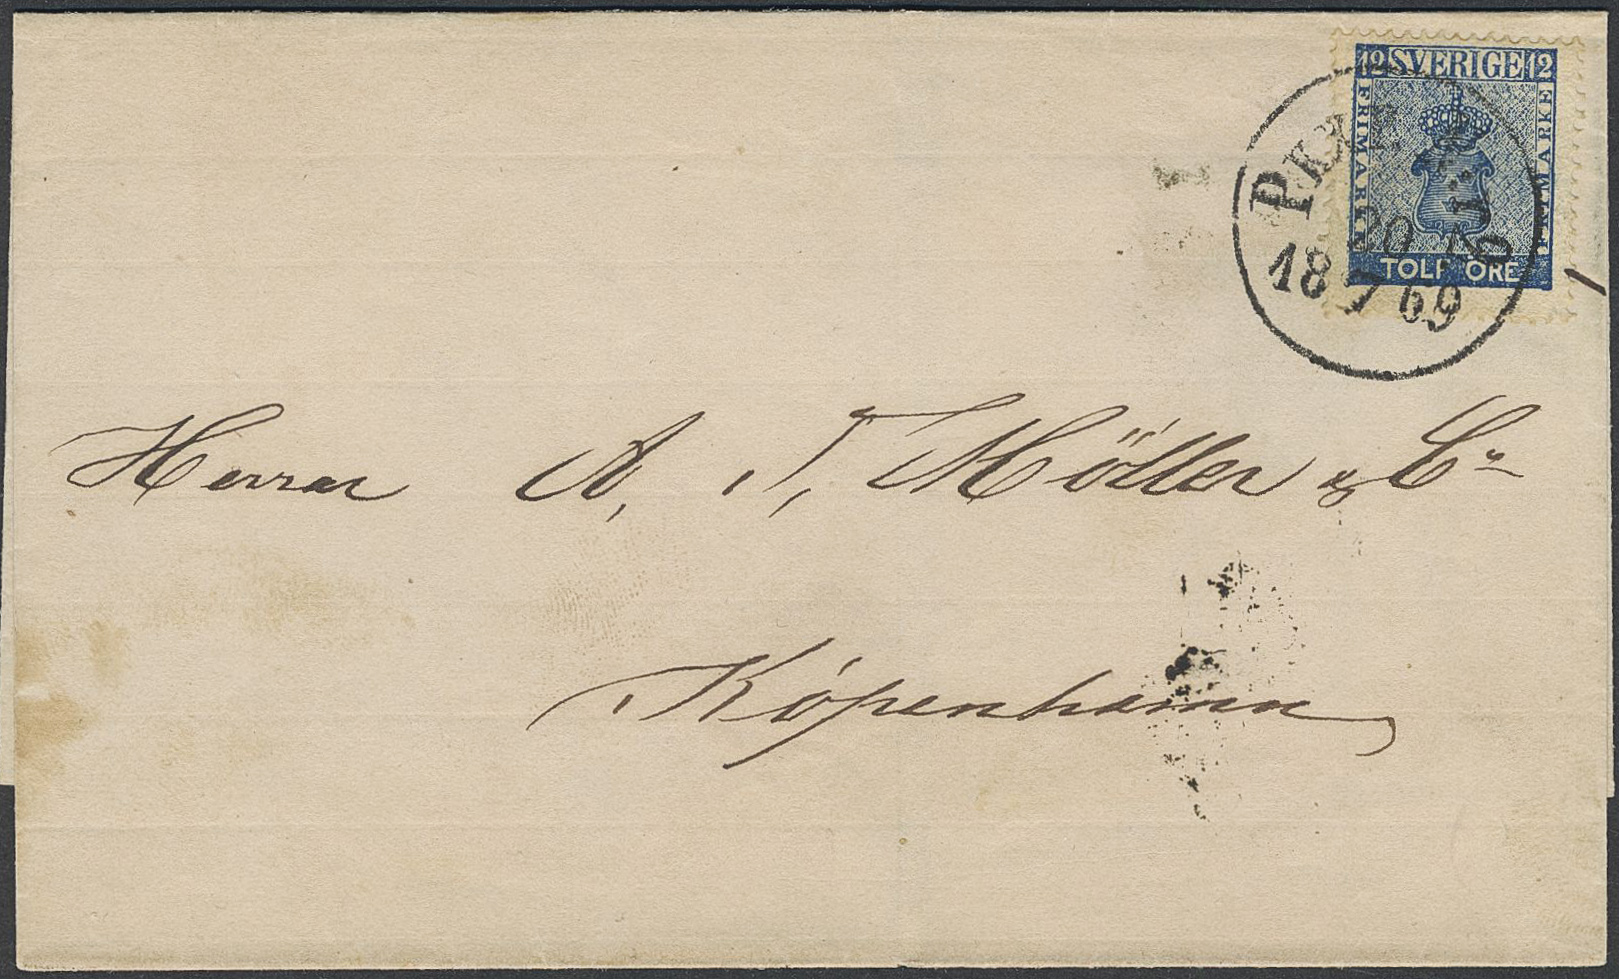 12 SVERIGE 12
FRIMARKE
FRIMARKE
TOLF ÖRE
20 10
18 7 69
Herrar A. T. Möller & Co
Köpenhamn